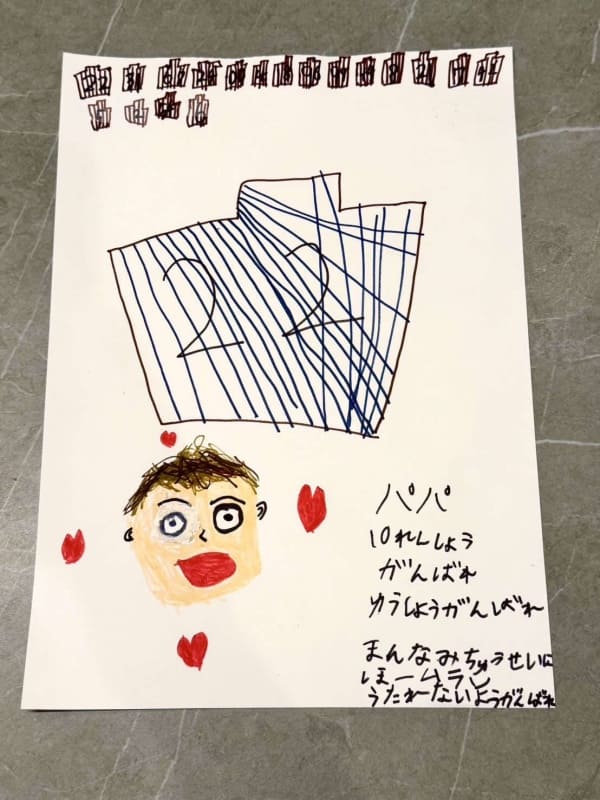 22
パパ
10れんしょう
がんばれ
ゆうしょうがんばれ
まんなみちゅうせいに
ほームラン
うたれーないようがんばれ